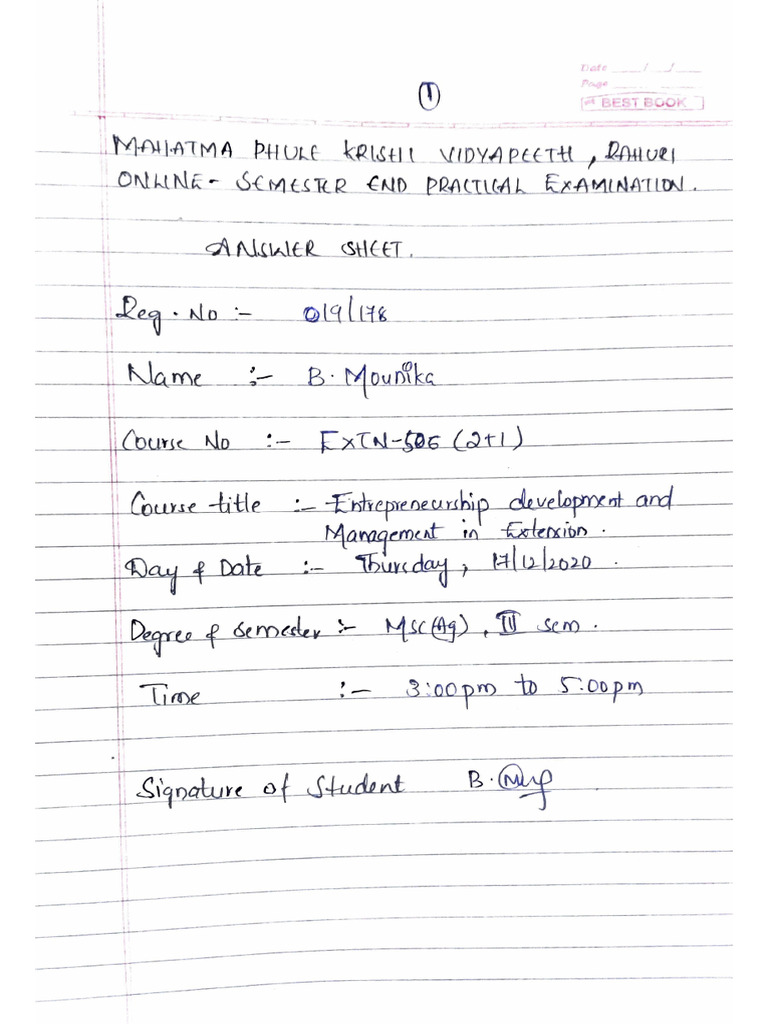 Date ___/___/___
①
Page
BEST BOOK
MAHATMA PHULE KRISHI VIDYAPEETH, RAHURI
ONLINE- SEMESTER END PRACTICAL EXAMINATION.
ANSWER SHEET.
Reg. No :- 019/178
Name :- B. Mounika
Course No :- EXTN-505 (2+1)
Course title :- Entrepreneurship development and
Management in Extension.
Day & Date :- Thursday, 17/12/2020.
Degree & semester :- MSc(Ag), III sem.
Time :- 3:00pm to 5:00pm
Signature of Student B.